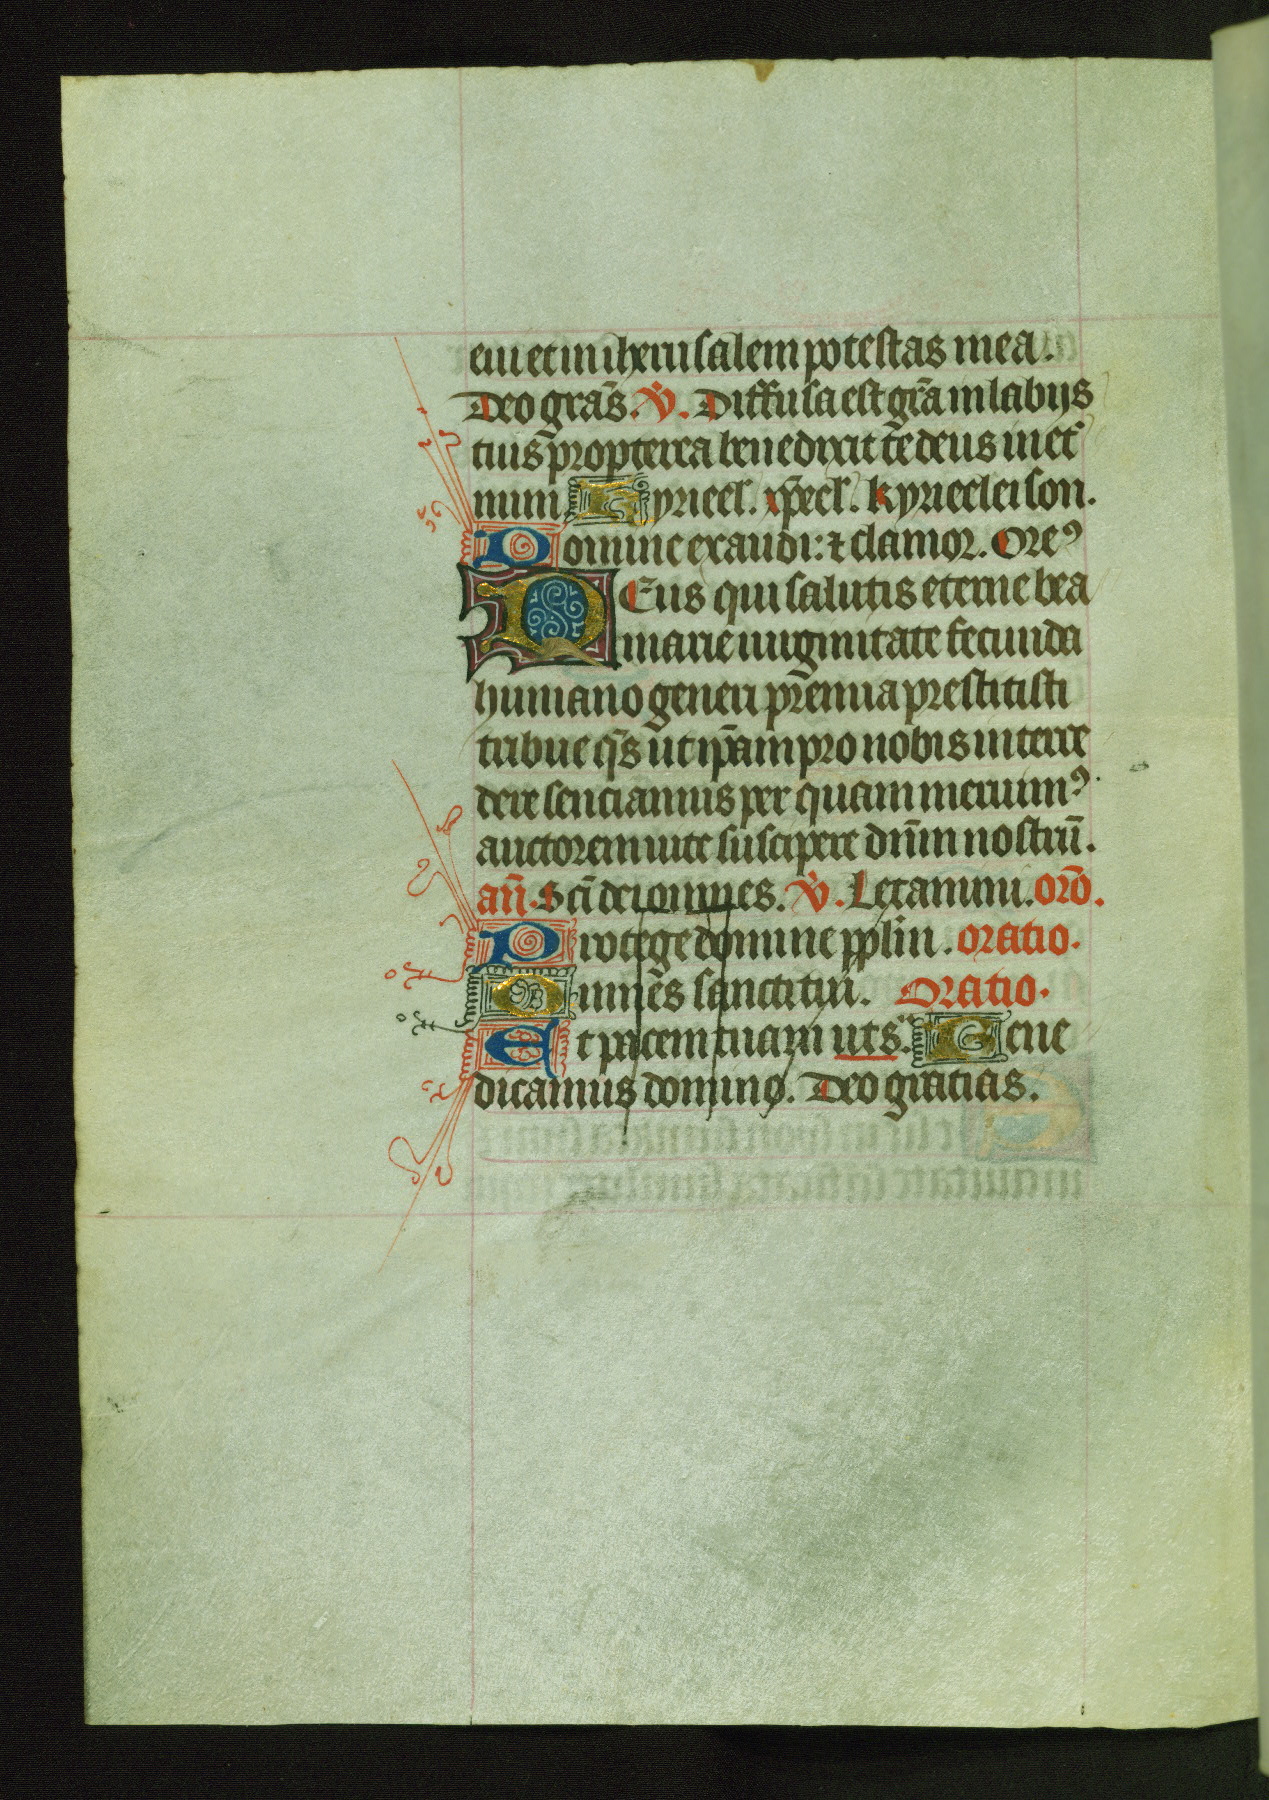 eui et in iherusalem potestas mea.
Deo grãs. V̇. Diffusa est grã in labijs
tuis propterea benedixit te deus in et
num Kyrieel. xp̃eel. kyrieeleison.
Domine exaudi: ⁊ clamor. Oreꝰ
DEus qui salutis eterne bea
marie uirginitate fecunda
humano generi p̃remia prestitisti
tribue q̃s ut ip̃am pro nobis interce
dere senciamus per quam meruimꝰ
auctorem uite suscipere dñm nostrũ.
añ. Sc̃i dei omnes. V̇. Letamini. orõ.
Protege domine pplm. oratio.
Omnes sancti tui. Oratio.
Et pacem tuam ut sͬ. Bene
dicamus domino. Deo gratias.